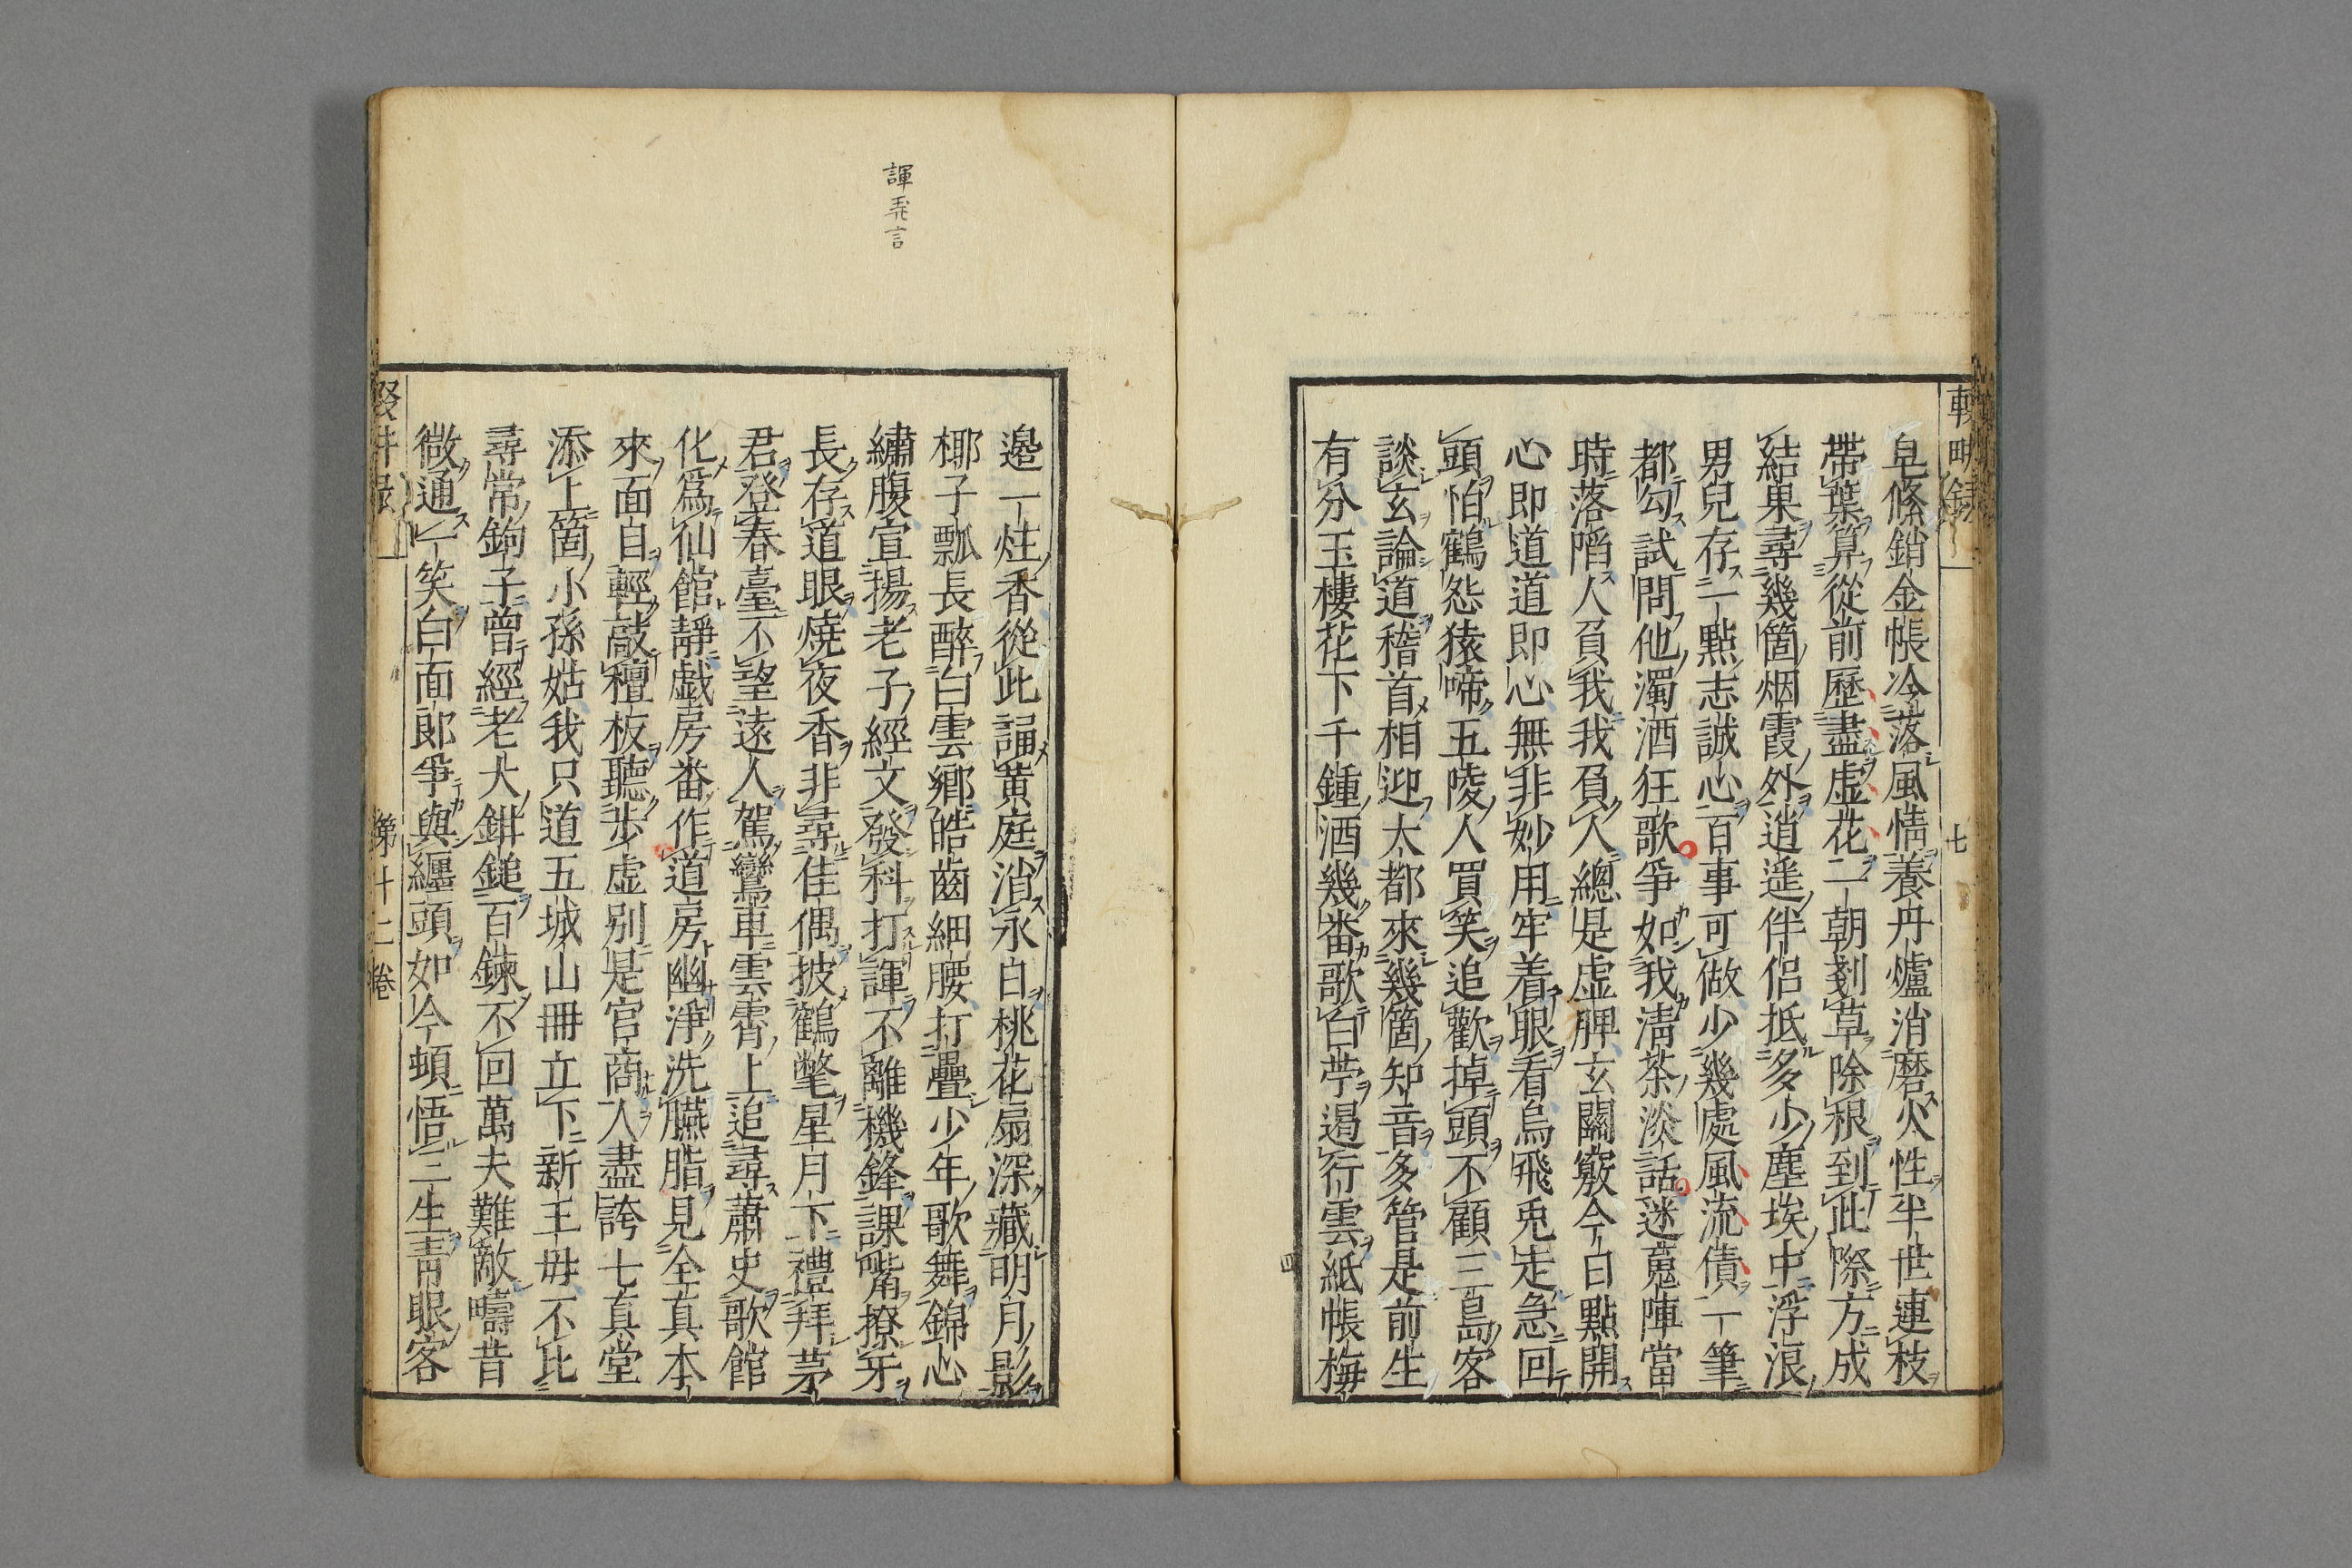 皂絛銷金帳冷落風情養丹爐消磨火性半世連枝
帶葉算從前歷盡虛花一朝剗草除根到此際方成
結果尋幾箇烟霞外逍遥伴侶抵多少塵埃中浮浪
男兒存一點志誠心百事可做少幾處風流債一筆
都勾試問他濁酒狂歌爭如我清茶淡話迷䰟陣當
時落陷人負我我負人總是虛脾玄關竅今日點開
心即道道即心無非妙用牢着眼看烏飛兎走急回
頭怕鶴怨猿啼五陵人買笑追歡掉頭不顧三島客
談玄論道稽首相迎大都來幾箇知音多管是前生
有分玉樓花下千鍾酒幾番歌白苧遏行雲紙帳梅
邊一炷香從此誦黃庭消永白桃花扇深藏明月影
椰子瓢長醉白雲鄉皓齒細腰打疊少年歌舞錦心
繡腹宣揚老子經文發科打諢不離機鋒課嘴撩牙
長存道眼燒夜香非尋佳偶披鶴氅星月下禮拜茅
君登春臺不望遠人駕鸞車雲霄上追尋蕭史歌館
化爲仙館靜戲房番作道房幽淨洗臙脂見全真本
來面自輕敲檀板聽步虛别是官商人盡誇七真堂
添上箇小孫姑我只道五城山冊立下新王毋不比
尋常鉤子曾經老大鉗鎚百鍊不回萬夫難敵疇昔
微通一笑白面郎爭與纏頭如今頓悟三生靑眼客
輟畊録
七
四
第十二巻
諢 弄言